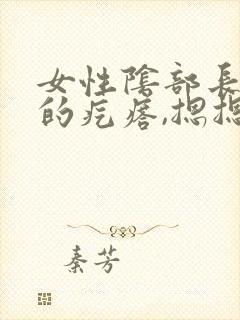 女性陰部長
的疙瘩,摁摁
秦芳